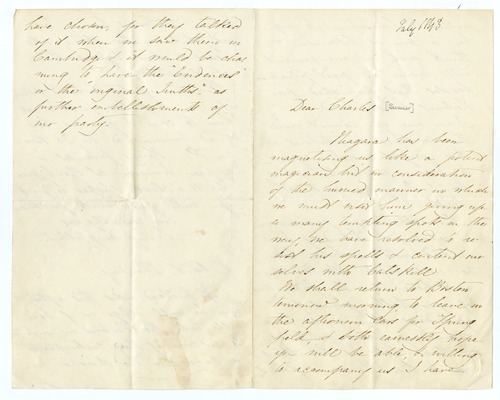 have chosen, for they talked
of it when we saw them in
Cambridge & it would be char
ming to have the "Evidences"
or the "original Truths" as
further embellishments of
our party.
July 1843.
Dear Charles [Sumner]
Niagara has been
magnetising us like a potent
magician but in consideration
of the hurried manner in which
we must visit him giving up
so many tempting spots on the
way, we have resolved to re-
sist his spells & content our
selves with Catskill.
We shall return to Boston
tomorrow morning to leave in
the afternoon cars for Spring
field, & both earnestly hope
you will be able, & willing
to accompany us. I have